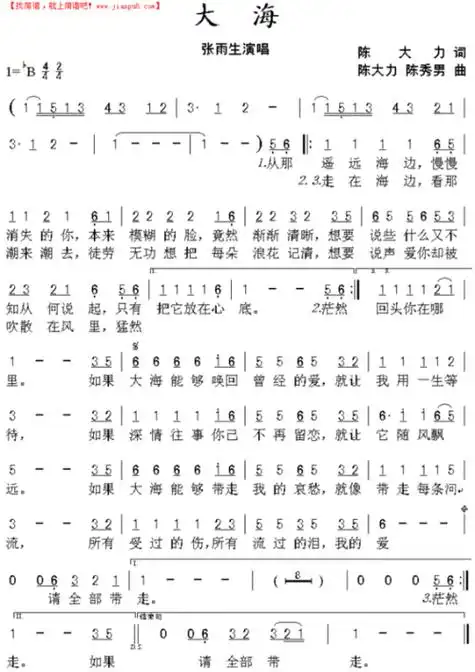 【找简谱，就上简谱吧！www.jianpu8.com】
大 海
张雨生演唱
陈 大 力 词
1=♭B 4/4 2/4
陈大力 陈秀男 曲
( 1 1 5 1 3 4 3 1 2 | 3· 1 2 - | 1 1 5 1 3 4 3 1 2 |
3· 1 2 - | 1 - - - | 1 - - ) 5 6 |: 1 1 1 1 6 5 |
1.从那 遥 远 海 边,慢慢
2.3.走 在 海 边,看那
1 1 2 1 6 1 | 2 2 2 2 1 6 | 2 2 3 2 3 5 | 6 5 5 6 5 3 |
消 失 的 你,本来 模 糊 的 脸,竟然 渐 渐 清 晰,想要 说些 什么又不
潮 来 潮 去,徒劳 无 功 想 把 每朵 浪 花 记 清,想要 说声 爱你却被
2 3 2 1 5 6 | 1 1 1 1 1 6 | 1 - - 5 6 :| 1 1 1 2 1
知从 何 说 起,只有 把它放在心 底。 2.茫然 回头你在哪
吹散 在风 里,猛然
1 - - 3 5 | 6 6 6 6 1 6 | 5 5 6 5 3 2 | 1 1 1 1 2
里。 如果 大 海 能 够 唤回 曾 经 的 爱,就让 我 用 一 生等
3 - - 3 5 | 6 6 6 6 1 6 | 5 5 6 5 3 5 | 6· 1 1 6 5
待, 如果 深 情 往 事 你已 不 再 留恋,就让 它 随 风飘
5 - - 3 5 | 6 6 6 6 1 6 | 5 5 6 5 3 2 | 1 1 1 1 5
远。 如果 大 海 能 够 带走 我 的 哀愁,就像 带 走 每条河
3 - - 3 2 | 1 1 1 1 1 2 | 5 5 3 5 3 5 | 6 - - -
流, 所有 受 过 的 伤,所有 流 过 的泪,我的 爱
0 0 0 6 3 2 1 | 1 - - - | 8 | 0 0 0 5 6 :|
请 全 部 带 走。 3.茫然
1 - 3 5 | 0 0 0 6 3 2 3 2 1 | 1 - - - ||
D.S.
走。 如 果 请 全 部 带 走。